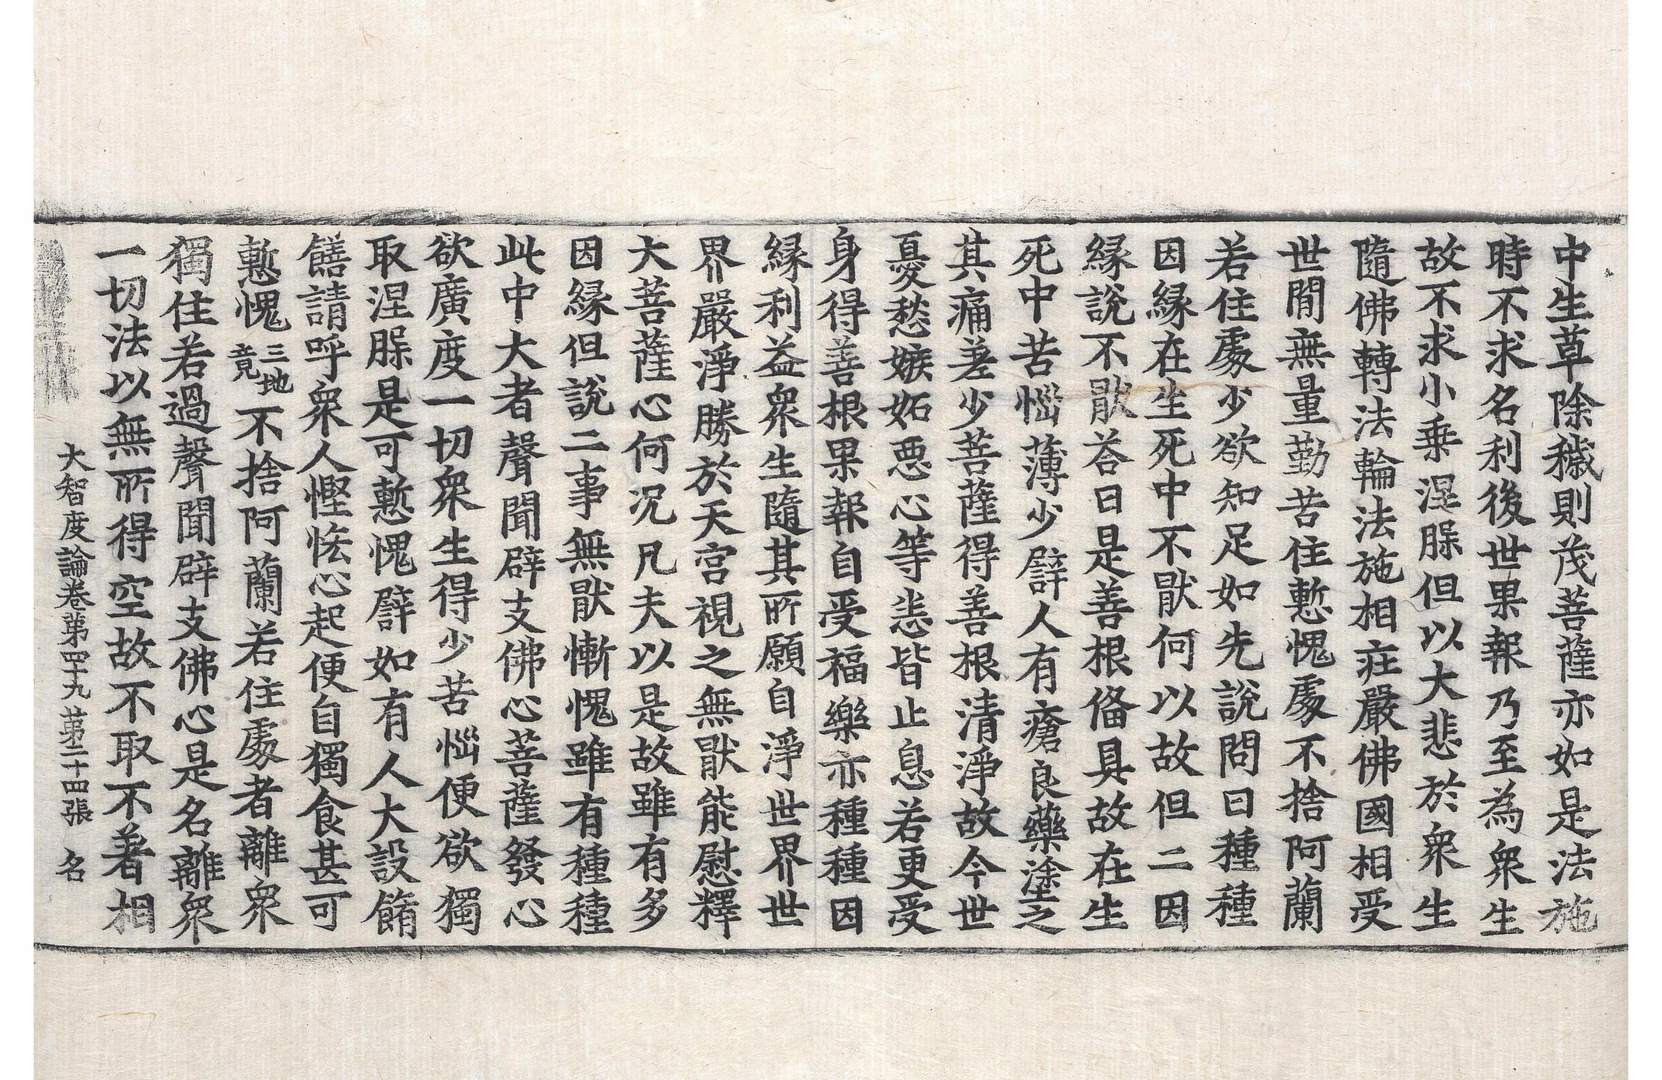 中生草除穢則茂菩薩亦如是法施
時不求名利後世果報乃至為衆生
故不求小乗涅槃但以大悲於衆生
隨佛轉法輪法施相莊嚴佛國相受
世閒無量勤苦住慙愧處不捨阿蘭
若住處少欲知足如先說問曰種種
因緣在生死中不猒何以故但二因
緣說不猒荅曰是善根俻具故在生
死中苦惱薄少譬人有瘡良藥塗之
其痛差少菩薩得善根清淨故今世
憂愁嫉妬悪心等悉皆止息若更受
身得善根果報自受福樂亦種種因
緣利益衆生隨其所願自淨世界世
界嚴淨勝於天宮視之無猒能慰釋
大菩薩心何況凡夫以是故雖有多
因緣但說二事無猒慚愧雖有種種
此中大者聲聞辟支佛心菩薩發心
欲廣度一切衆生得少苦惱便欲獨
取涅槃是可慙愧譬如有人大設餚
饍請呼衆人慳悋心起便自獨食甚可
慙愧三地竟不捨阿蘭若住處者離衆
獨住若過聲聞辟支佛心是名離衆
一切法以無所得空故不取不著相
大智度論卷第四十九 第二十四張 名